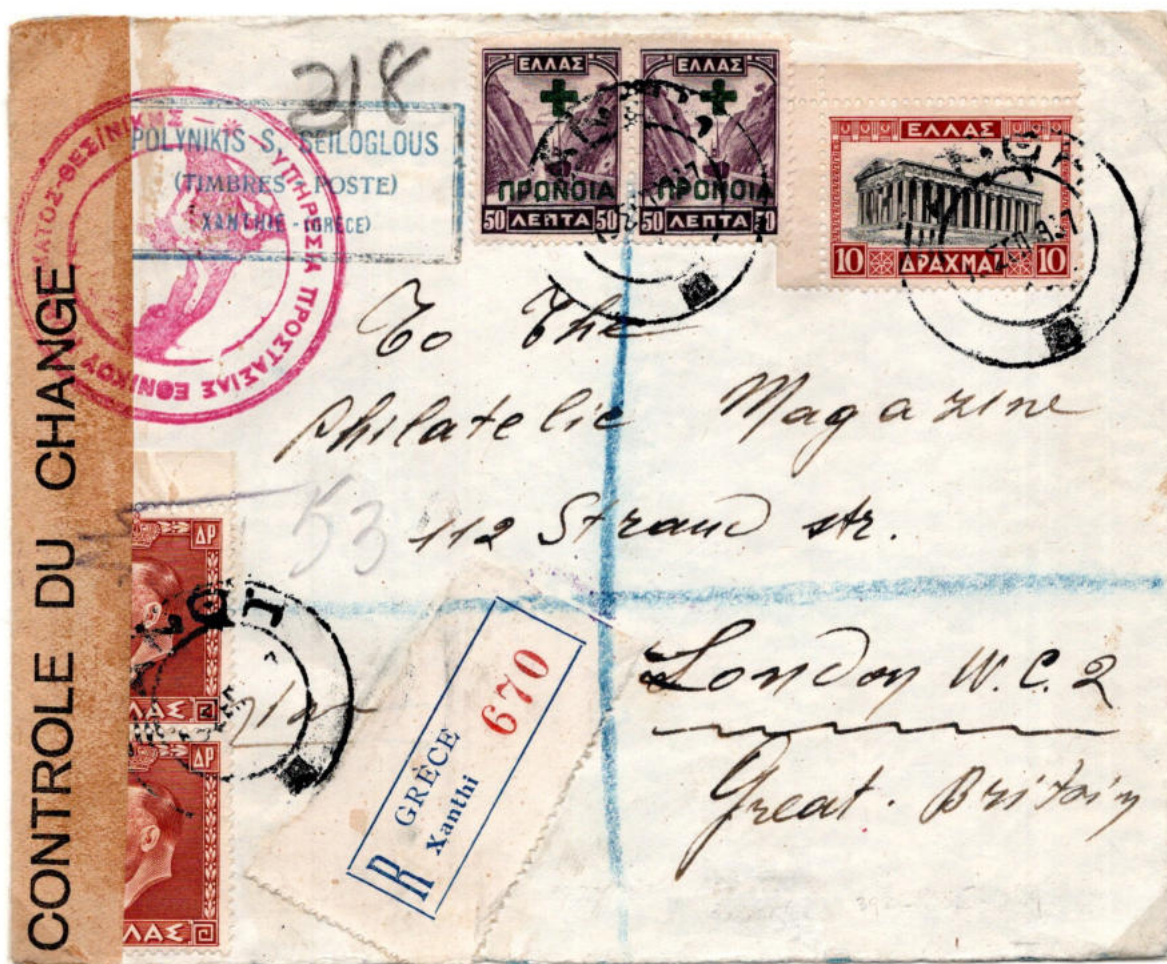 CONTROLE DU CHANGE
218
POLYNIKIS S, GEILOGLOUS
(TIMBRES - POSTE)
XANTHIE - (GRÈCE)
ΥΠΗΡΕΣΙΑ ΠΡΟΣΤΑΣΙΑΣ ΕΘΝΙΚΟΥ
ΘΕΣ/ΝΙΚΗΣ
ΕΛΛΑΣ
ΠΡΟΝΟΙΑ
50 ΛΕΠΤΑ 50
ΕΛΛΑΣ
ΠΡΟΝΟΙΑ
50 ΛΕΠΤΑ 50
ΕΛΛΑΣ
10 ΔΡΑΧΜΑΙ 10
To The
Philatelic Magazine
112 Strand str.
London W.C.2
Great. Britain
53
ΔΡ
ΛΑΣ
ΔΡ
ΛΑΣ
R GRÈCE
Xanthi
670